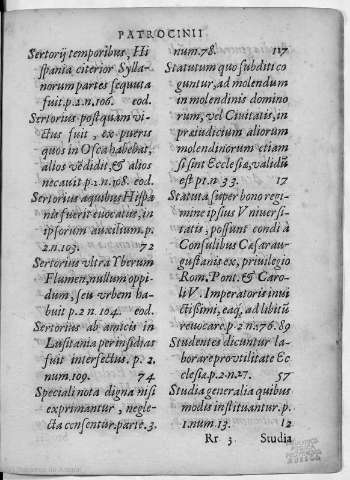 PATROCINII
Sertorij temporibus, Hi
spania citerior Sylla-
norum partes sequuta
fuit.p.2.n.106. eod.
Sertorius postquam vi-
ctus fuit, ex pueris
quos in Osca habebat,
alios vēdidit, & alios
necauit p.2.n.108. eod.
Sertorius aquibus Hispa
nis fuerit euocatus, in
ipsorum auxilium.p.
2.n.103. 72
Sertorius vltra Yberum
Flumen, nullum oppi-
dum, seu vrbem ha-
buit p.2 n.104. eod.
Sertorius ab amicis in
Lusitania per insidias
fuit intersectus. p. 2.
num.109. 74
Speciali nota digna nisi
exprimantur, negle-
cta censentur.parte.3.
num.78. 117
Statutum quo subditi co
guntur, ad molendum
in molendinis domino
rum, vel Ciuitatis, in
præiudicium aliorum
molendinorum etiam
si sint Ecclesiæ, validū
est p1.n.33. 17
Statuta super bono regi-
mine ipsius Vniuersi-
tatis, possunt condi à
Consulibus Cæsarau-
gustanis ex, priuilegio
Rom. Pont. & Caro-
li V. Imperatoris inui
ctissimi, eaq; ad libitū
reuocare.p.2 n.176.89
Studentes dicuntur la-
borare pro vtilitate Ec
clesiæ.p.2.n.27. 57
Studia generalia quibus
modis instituantur.p.
1.num.13. 12
Rr 3 Studia